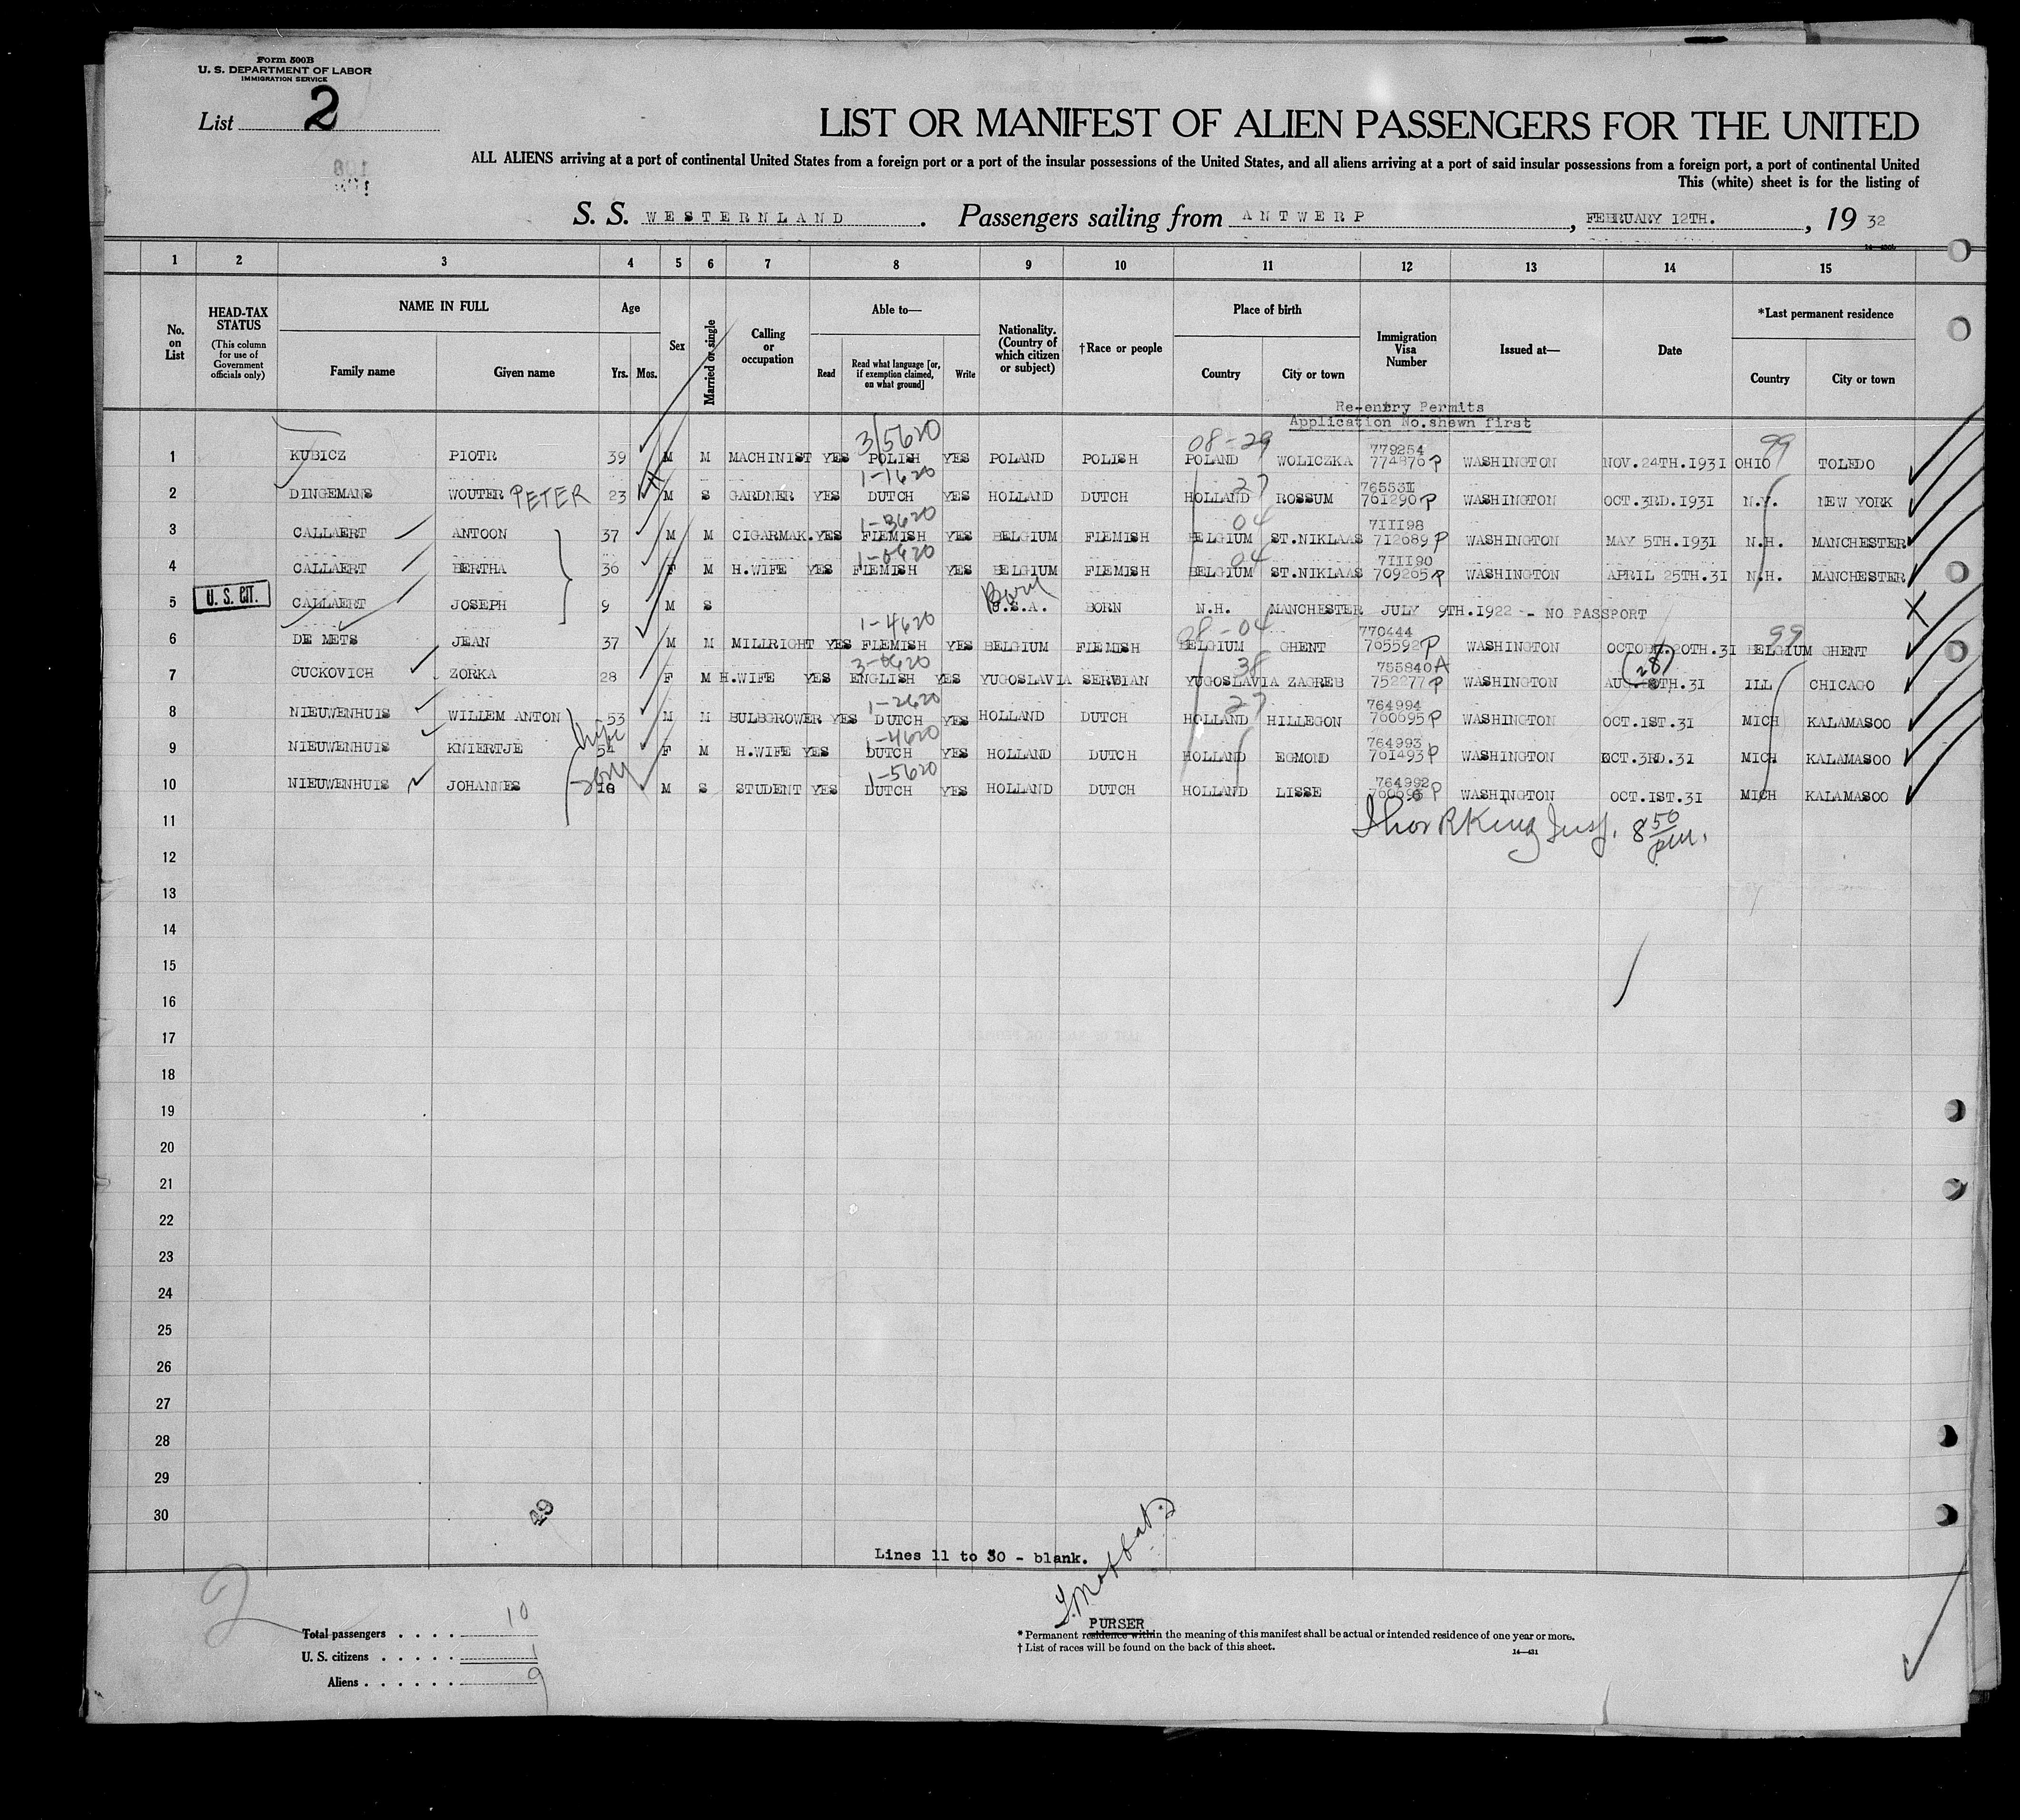 Form 500B
U. S. DEPARTMENT OF LABOR
IMMIGRATION SERVICE
List 2
LIST OR MANIFEST OF ALIEN PASSENGERS FOR THE UNITED
ALL ALIENS arriving at a port of continental United States from a foreign port or a port of the insular possessions of the United States, and all aliens arriving at a port of said insular possessions from a foreign port, a port of continental United
This (white) sheet is for the listing of
S. S. WESTERNLAND . Passengers sailing from ANTWERP , FEBRUARY 12TH. , 19 32
1 2 3 4 5 6 7 8 9 10 11 12 13 14 15
No. on List
HEAD-TAX STATUS
(This column for use of Government officials only)
NAME IN FULL
Family name Given name
Age
Yrs. Mos.
Sex
Married or single
Calling or occupation
Able to—
Read Read what language [or, if exemption claimed, on what ground] Write
Nationality. (Country of which citizen or subject)
†Race or people
Place of birth
Country City or town
Immigration Visa Number
Issued at—
Date
*Last permanent residence
Country City or town
Re-entry Permits
Application No. shewn first
3/5620 08-29 99
1 KUBICZ PIOTR 39 M M MACHINIST YES POLISH YES POLAND POLISH POLAND WOLICZKA 779254 774876 P WASHINGTON NOV.24TH.1931 OHIO TOLEDO
1-1620 27
2 DINGEMANS WOUTER PETER 23 M S GARDNER YES DUTCH YES HOLLAND DUTCH HOLLAND ROSSUM 761290 P WASHINGTON OCT.3RD.1931 N.Y. NEW YORK
1-3620 04
3 CALLAERT ANTOON 37 M M CIGARMAK. YES FLEMISH YES BELGIUM FLEMISH BELGIUM ST.NIKLAAS 7III98 712689 P WASHINGTON MAY 5TH.1931 N.H. MANCHESTER
04
4 CALLAERT BERTHA 36 F M H.WIFE YES FLEMISH YES BELGIUM FLEMISH BELGIUM ST.NIKLAAS 7III90 709265 P WASHINGTON APRIL 25TH.31 N.H. MANCHESTER
Born
5 U. S. CIT. CALLAERT JOSEPH 9 M S U.S.A. BORN N.H. MANCHESTER JULY 9TH.1922 - NO PASSPORT X
1-4620 08-04 99
6 DE METS JEAN 37 M M MILLRIGHT YES FLEMISH YES BELGIUM FLEMISH BELGIUM GHENT 770444 765592 P WASHINGTON OCTOBR.20TH.31 BELGIUM GHENT
38 (28)
7 CUCKOVICH ZORKA 28 F M H.WIFE YES ENGLISH YES YUGOSLAVIA SERBIAN YUGOSLAVIA ZAGREB 755840 A 752277 P WASHINGTON ILL CHICAGO
1-2620 27
8 NIEUWENHUIS WILLEM ANTON 53 M M BULBGROWER YES DUTCH YES HOLLAND DUTCH HOLLAND HILLEGON 764994 760695 P WASHINGTON OCT.1ST.31 MICH KALAMASOO
wife 1-4620
9 NIEUWENHUIS KNIERTJE 54 F M H.WIFE YES DUTCH YES HOLLAND DUTCH HOLLAND EGMOND 764993 761493 P WASHINGTON OCT.3RD.31 MICH KALAMASOO
son 1-5620
10 NIEUWENHUIS JOHANNES 18 M S STUDENT YES DUTCH YES HOLLAND DUTCH HOLLAND LISSE 764992 P WASHINGTON OCT.1ST.31 MICH KALAMASOO
11 Thos R King Insp. 8 50 pm.
12
13
14
15
16
17
18
19
20
21
22
23
24
25
26
27
28
29
30
49
Lines 11 to 30 - blank.
2
PURSER
Total passengers . . . . 10
U. S. citizens . . . . . 1
Aliens . . . . . . 9
* Permanent residence within the meaning of this manifest shall be actual or intended residence of one year or more.
† List of races will be found on the back of this sheet.
14—431